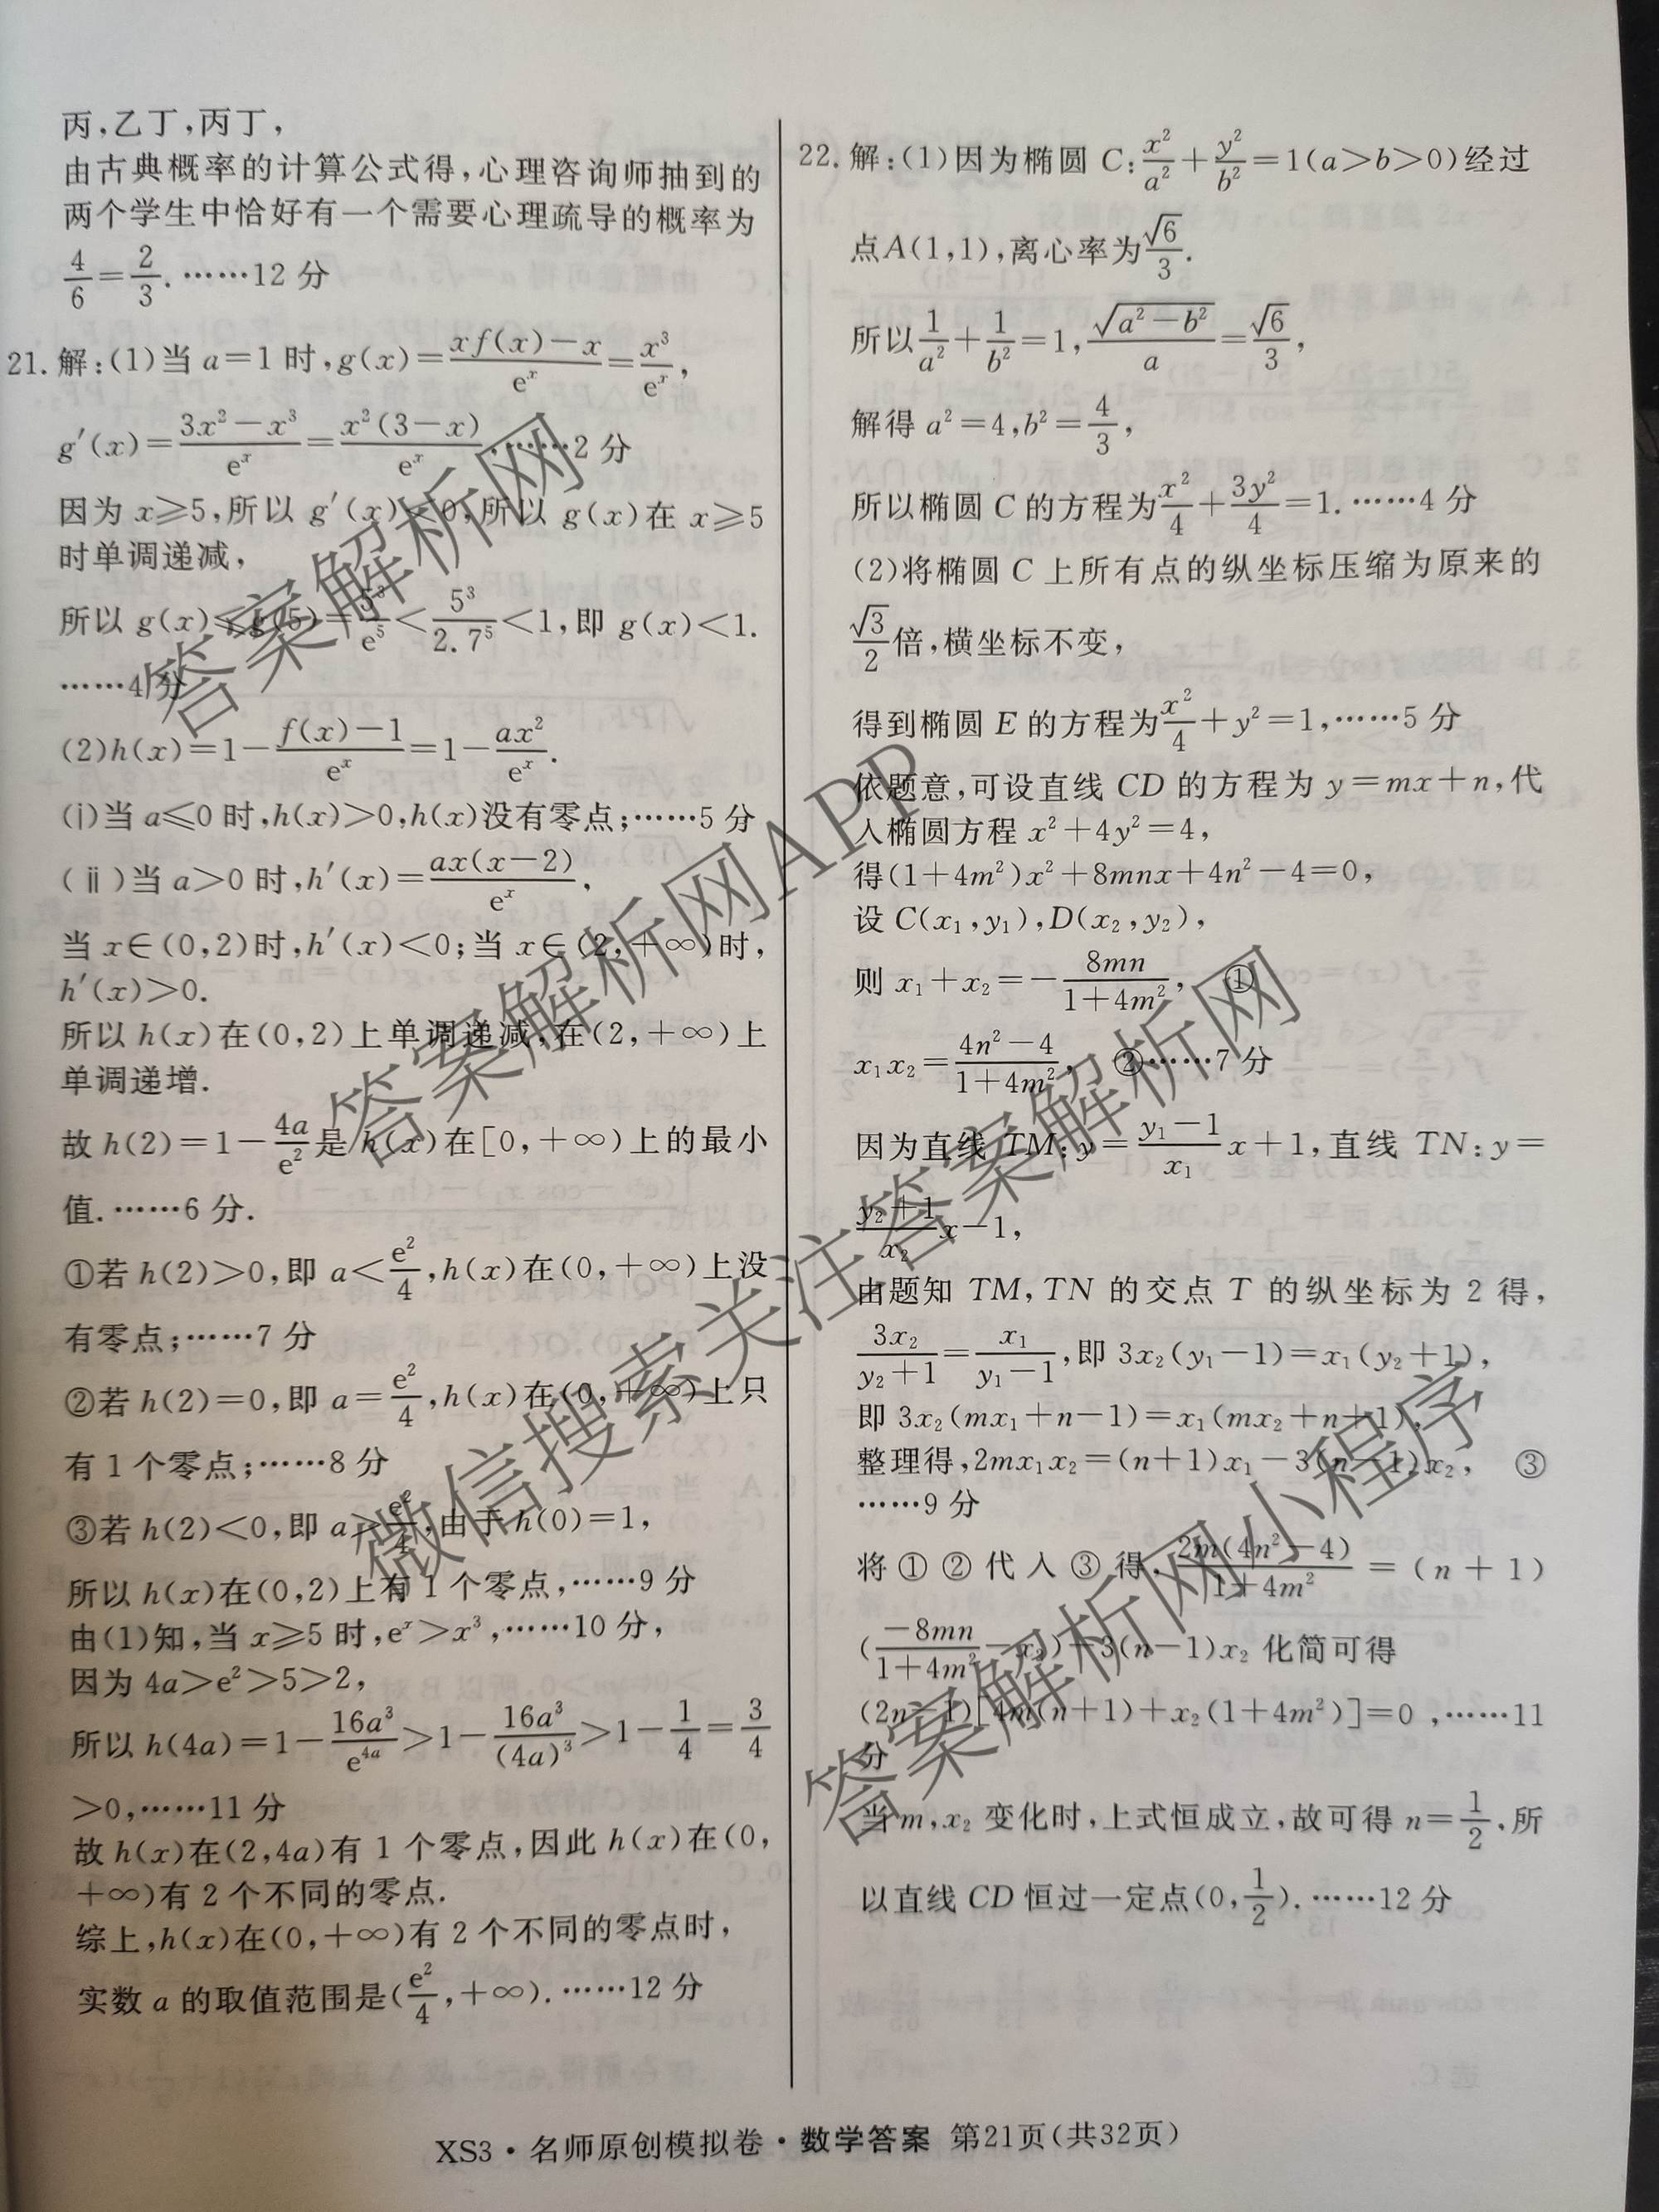 丙,乙丁,丙丁,
由古典概率的计算公式得,心理咨询师抽到的
两个学生中恰好有一个需要心理疏导的概率为
4/6=2/3.……12 分
21. 解:(1)当 a=1 时,g(x)=(xf(x)-x)/e^x=x³/e^x,
g′(x)=(3x²-x³)/e^x=x²(3-x)/e^x.……2 分
因为 x≥5,所以 g′(x)<0,所以 g(x)在 x≥5
时单调递减,
所以 g(x)≤g(5)=5³/e⁵<5³/2.7⁵<1,即 g(x)<1.
……4 分
(2)h(x)=1-(f(x)-1)/e^x=1-ax²/e^x.
(ⅰ)当 a≤0 时,h(x)>0,h(x)没有零点;……5 分
(ⅱ)当 a>0 时,h′(x)=ax(x-2)/e^x,
当 x∈(0,2)时,h′(x)<0;当 x∈(2,+∞)时,
h′(x)>0.
所以 h(x)在(0,2)上单调递减,在(2,+∞)上
单调递增.
故 h(2)=1-4a/e²是 h(x)在[0,+∞)上的最小
值.……6 分.
①若 h(2)>0,即 a<e²/4,h(x)在(0,+∞)上没
有零点;……7 分
②若 h(2)=0,即 a=e²/4,h(x)在(0,+∞)上只
有 1 个零点;……8 分
③若 h(2)<0,即 a>e²/4,由于 h(0)=1,
所以 h(x)在(0,2)上有 1 个零点,……9 分
由(1)知,当 x≥5 时,e^x>x³,……10 分,
因为 4a>e²>5>2,
所以 h(4a)=1-16a³/e^(4a)>1-16a³/(4a)³>1-1/4=3/4
>0,……11 分
故 h(x)在(2,4a)有 1 个零点,因此 h(x)在(0,
+∞)有 2 个不同的零点.
综上,h(x)在(0,+∞)有 2 个不同的零点时,
实数 a 的取值范围是(e²/4,+∞).……12 分
22. 解:(1)因为椭圆 C:x²/a²+y²/b²=1(a>b>0)经过
点A(1,1),离心率为√6/3.
所以1/a²+1/b²=1,√(a²-b²)/a=√6/3,
解得 a²=4,b²=4/3,
所以椭圆 C 的方程为x²/4+3y²/4=1.……4 分
(2)将椭圆 C 上所有点的纵坐标压缩为原来的
√3/2倍,横坐标不变,
得到椭圆 E 的方程为x²/4+y²=1,……5 分
依题意,可设直线 CD 的方程为 y=mx+n,代
入椭圆方程 x²+4y²=4,
得(1+4m²)x²+8mnx+4n²-4=0,
设 C(x₁,y₁),D(x₂,y₂),
则 x₁+x₂=-8mn/(1+4m²), ①
x₁x₂=(4n²-4)/(1+4m²), ②……7 分
因为直线 TM:y=(y₁-1)/x₁ x+1,直线 TN:y=
(y₂+1)/x₂ x-1,
由题知 TM,TN 的交点 T 的纵坐标为 2 得,
3x₂/(y₂+1)=x₁/(y₁-1),即 3x₂(y₁-1)=x₁(y₂+1),
即 3x₂(mx₁+n-1)=x₁(mx₂+n+1),
整理得,2mx₁x₂=(n+1)x₁-3(n-1)x₂, ③
……9 分
将 ① ② 代入 ③ 得,2m(4n²-4)/(1+4m²)=(n+1)
(-8mn/(1+4m²)-x₂)-3(n-1)x₂ 化简可得
(2n-1)[4m(n+1)+x₂(1+4m²)]=0 ,……11
分
当 m,x₂ 变化时,上式恒成立,故可得 n=1/2,所
以直线 CD 恒过一定点(0,1/2).……12 分
XS3·名师原创模拟卷·数学答案 第21页(共32页)
答案解析网
答案解析网APP
微信搜索关注答案解析网
答案解析网小程序